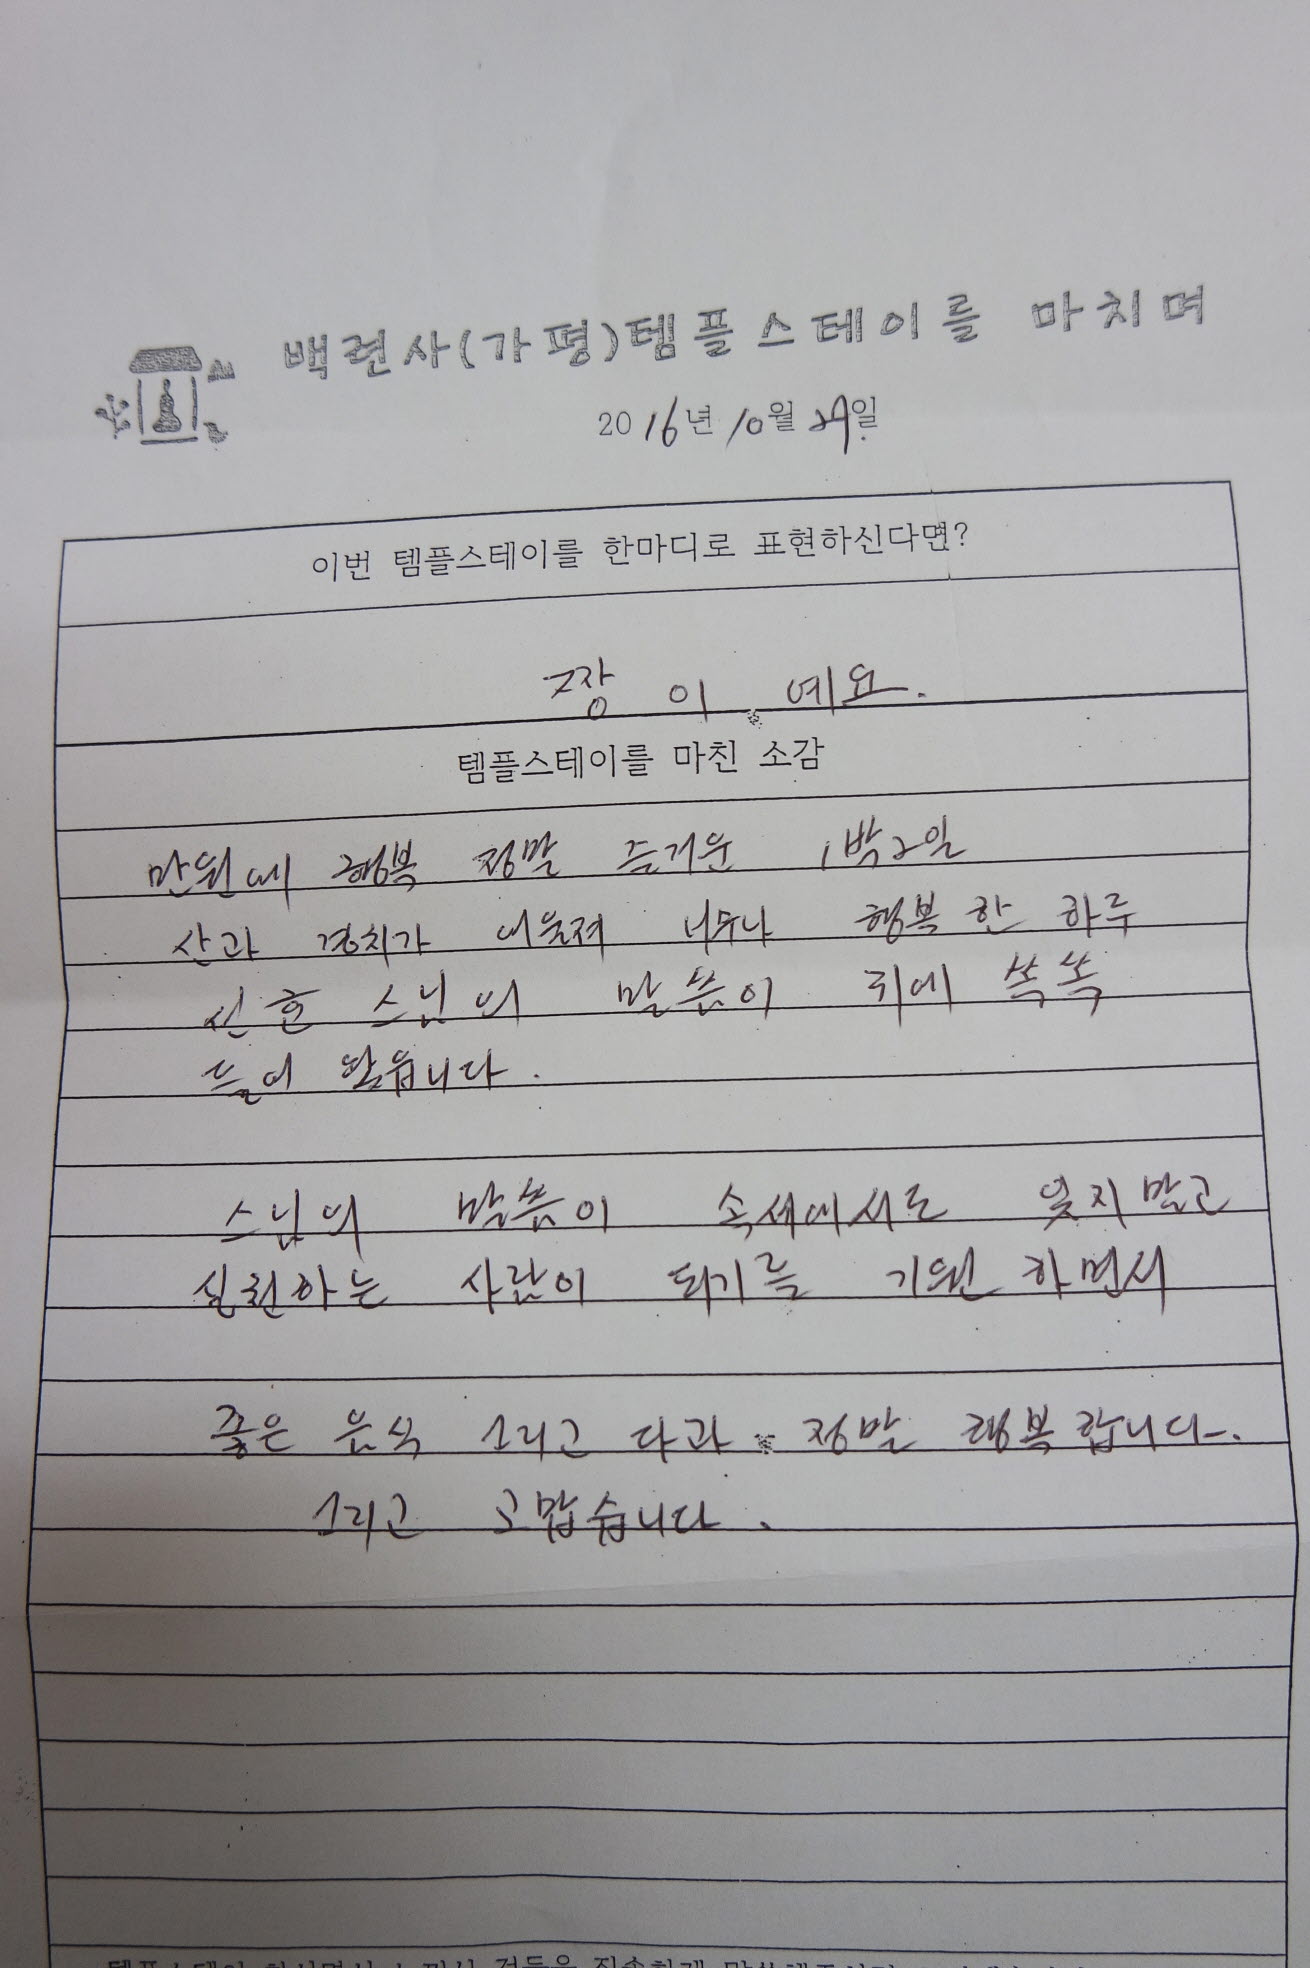 백련사(가평)템플스테이를 마치며
2016년 10월 29일
이번 템플스테이를 한마디로 표현하신다면?
짱 이 예요.
템플스테이를 마친 소감
만원에 행복 정말 즐거운 1박2일
산과 경치가 어울져 너무나 행복한 하루
선효 스님의 말씀이 귀에 쏙쏙
들어 왔읍니다.
스님의 말씀이 속세에서도 잊지말고
실천하는 사람이 되기를 기원 하면서
좋은 음식 그리고 다과 정말 행복합니다.
그리고 고맙습니다.